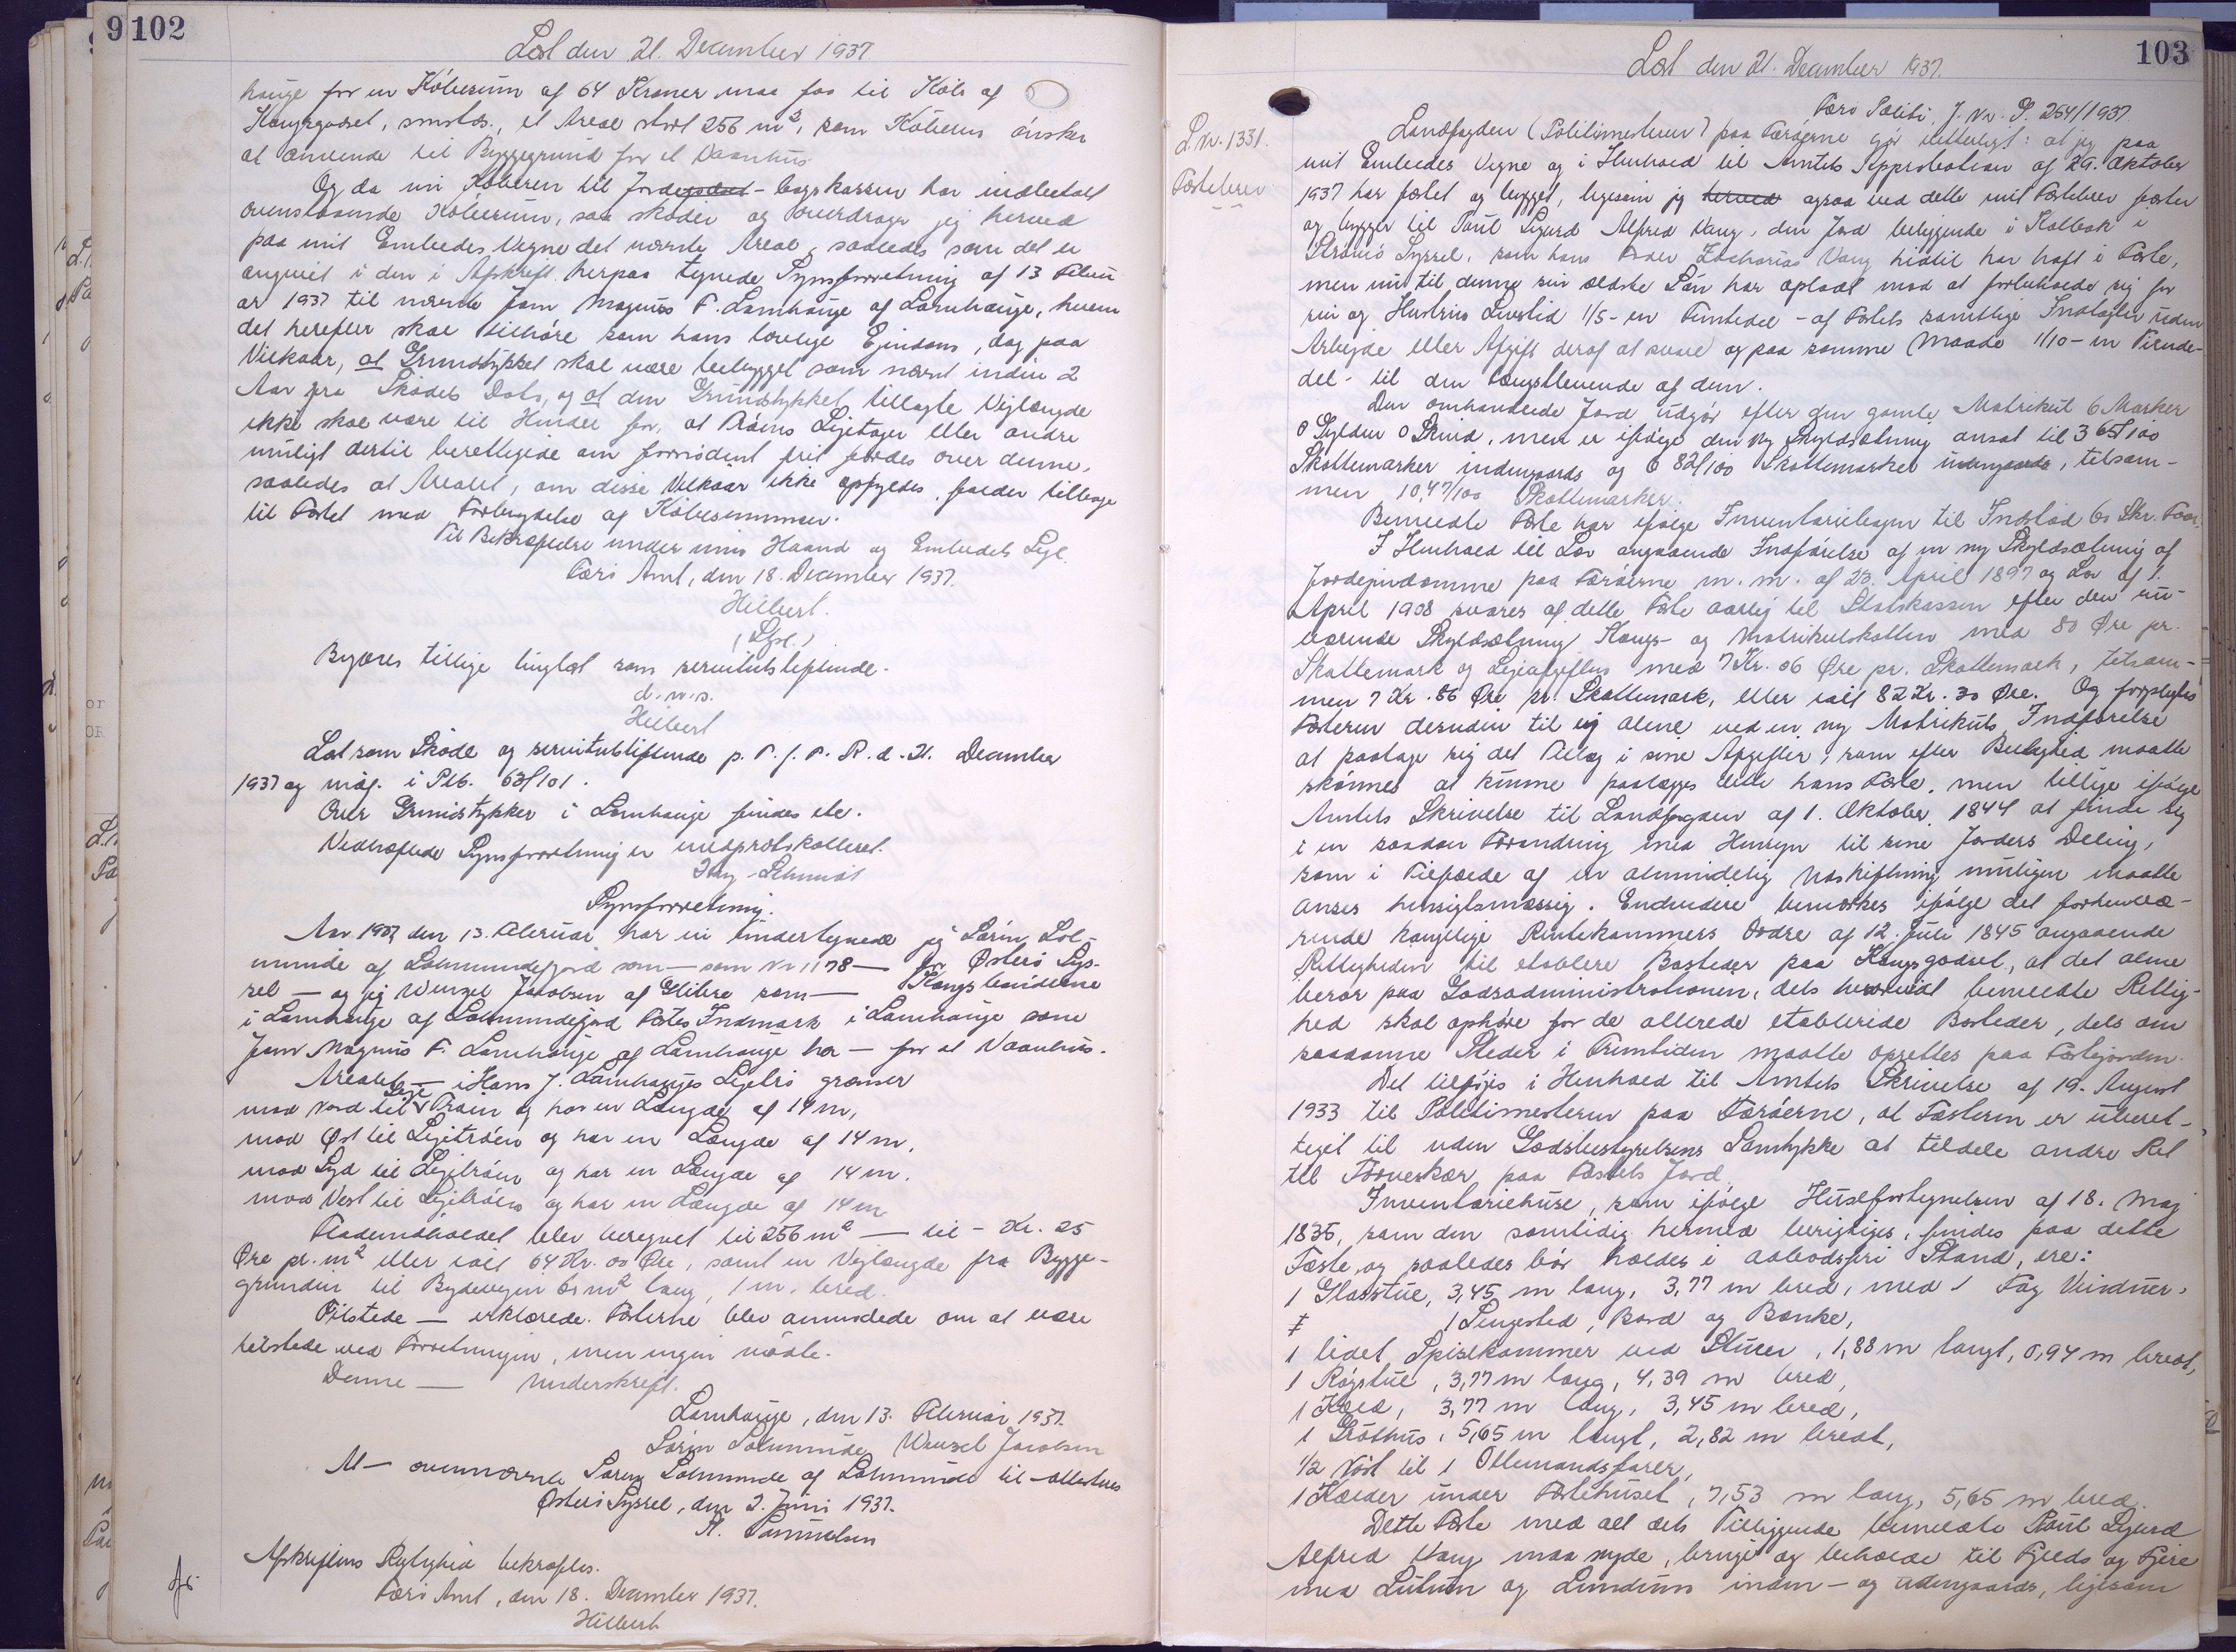 102
Læst den 21. December 1937.
hauge for en Købesum af 64 Kroner maa faa til Køb af
Kongsgodset, smstds., et Areal stort 256 m², som Køberen ønsker
at anvende til Byggegrund for et Vaanhus.
Og da nu Køberen til Jordebogskassen har indbetalt
ovenstaaende Købesum, saa skøder og overdrager jeg herved
paa mit Embedes Vegne det nævnte Areal, saaledes som det er
angivet i den i Afskrift herpaa tegnede Synsforretning af 13 Febru
ar 1937 til nævnte Joan Magnus F. Lamhauge af Lamhauge, hvem
det herefter skal tilhøre som hans lovlige Ejendom, dog paa
Vilkaar, at Grundstykket skal være bebygget som nævnt inden 2
Aar fra Skødets Dato, og at den Grundstykket tillagte Vejlængde
ikke skal være til Hinder for, at Tråens Lejetager eller andre
muligt dertil berettigede om fornødent frit færdes over denne,
saaledes at Arealet, om disse Vilkaar ikke opfyldes, falder tilbage
til Fæstet med Fortabelse af Købesummen.
Til Bekræftelse under min Haand og Embedets Segl.
Færø Amt, den 18. December 1937.
Hilbert.
(Sgl.)
Begæres tillige tinglæst som servitutstiftende.
d.u.s.
Hilbert
Læst som Skøde og servitutstiftende p. F. f. F. R. d. 21. December
1937 og indf. i Ptb. 63/101.
Over Grundstykker i Lamhauge findes ete.
Vedhæftede Synsforretning er medprotokolleret.
Schmidt
Synsforretning.
Aar 1937 den 13. Februar har vi undertegnede jeg Sørin Sol-
munde af Solmundefjord som — som Nr 1178 — for Østerø Sys-
sel — og jeg Wenzel Jacobsen af Glibre som — Kongsbønderne
i Lamhauge af Solmundefjord Fæstes Indmark i Lamhauge som
Joan Magnus F. Lamhauge af Lamhauge har — for et Vaanhus.
Arealet — i Hans J. Lamhauges Lejetrø grænser
mod Nord til Leje Tråin og har en Længde af 14 m,
mod Øst til Lejetråen og har en Længde af 14 m.
mod Syd til Lejetråen og har en Længde af 14 m.
mod Vest til Lejetråen og har en Længde af 14 m
Fladeindholdet blev beregnet til 256 m² — til - Kr. 25
Øre pr. m² eller ialt 64 Kr. 00 Øre, samt en Vejlængde fra Bygge-
grunden til Bydevejen 60 m² lang, 1 m. bred.
Tilstede — erklærede. Fæsterne blev anmodede om at være
tilstede ved Forretningen, men ingen mødte.
Denne — Underskrift.
Lamhauge, den 13. Februar 1937.
Sørin Solmunde Wenzel Jacobsen
At — ovennævnte Søren Solmunde af Solmunde til — attesteres
Østerø Syssel, den 2. Juni 1937.
A. Samuelsen
Afskriftens Rigtighed bekræftes.
Færø Amt, den 18. December 1937.
Hilbert
103
Læst den 21. December 1937.
L.nr. 1331.
Fæstebrev
Færø Politi, J. Nr. P. 264/1937.
Landfogden (Politimesteren) paa Færøerne gør vitterligt: at jeg paa
mit Embedes Vegne og i Henhold til Amtets Approbation af 29. Oktober
1937 har fæstet og bygget, ligesom jeg herved ogsaa ved dette mit Fæstebrev fæster
og bygger til Poul Sigurd Alfred Vang, den Jord beliggende i Kalbak i
Strømø Syssel, som hans Fader Zacharias Vang hidtil har haft i Fæste,
men nu til denne sin ældste Søn har opladt mod at forbeholde sig for
sin og Hustrus Livstid 1/5 - en Femtedel - af Fæstets samtlige Indtægter uden
Arbejde eller Afgift deraf at svare og paa samme Maade 1/10 - en Tiende-
del - til den Længstlevende af dem.
Den omhandlede Jord udgør efter den gamle Matrikul 6 Marker
0 Gylden 0 Skind, men er ifølge den ny Skyldsætning ansat til 3 65/100
Skattemarker indengaards og 6 82/100 Skattemarker udengaards, tilsam-
men 10,47/100 Skattemarker.
Bemeldte Fæste har ifølge Inventariebogen til Indstød 60 Skr. Faar.
I Henhold til Lov angaaende Indførelse af en ny Skyldsætning af
Jordejendomme paa Færøerne m.m. af 23. April 1897 og Lov af 1.
April 1908 svares af dette Fæste aarlig til Statskassen efter den nu-
værende Skyldsætning Kongs- og Matrikulskatten med 80 Øre pr.
Skattemark og Lejeafgiften med 7 Kr. 06 Øre pr. Skattemark, tilsam-
men 7 Kr. 86 Øre pr. Skattemark, eller ialt 82 Kr. 30 Øre. Og forpligtes
Fæsteren desuden til ej alene ved en ny Matrikuls Indførelse
at paatage sig det Tillæg i sine Afgifter, som efter Billighed maatte
skønnes at kunne paalægges dette hans Fæste, men tillige ifølge
Amtets Skrivelse til Landfogden af 1. Oktober 1844 at finde sig
i en saadan Forandring med Hensyn til sine Jorders Deling,
som i Tilfælde af en almindelig Udskiftning muligen maatte
anses hensigtsmæssig. Endvidere bemærkes ifølge det forhenvæ-
rende kongelige Rentekammers Ordre af 12. Juli 1845 angaaende
Rettigheden til etablere Bosteder paa Kongsgodset, at det alene
beror paa Godsadministrationen, dels hvorvidt bemeldte Rettig-
hed skal ophøre for de allerede etablerede Bosteder, dels om
saadanne Steder i Fremtiden maatte oprettes paa Fæstejorden.
Det tilføjes i Henhold til Amtets Skrivelse af 19. August
1933 til Politimesteren paa Færøerne, at Fæsteren er uberet-
tiget til uden Godsbestyrelsens Samtykke at tildele andre Ret
til Tørveskær paa Fæstets Jord.
Inventariehuse, som ifølge Husefortegnelsen af 18. Maj
1835, som den samtidig hermed berigtiges, findes paa dette
Fæste, og saaledes bør holdes i aabodsfri Stand, ere:
1 Glasstue, 3,45 m lang, 3,77 m bred, med 1 Fag Vinduer,
1 Sengested, Bord og Bænke,
1 lidet Spisekammer ved Stuen, 1,88 m langt, 0,94 m bredt,
1 Røgstue, 3,77 m lang, 4,39 m bred,
1 Kove, 3,77 m lang, 3,45 m bred,
1 Gróthus, 5,65 m langt, 2,82 m bredt,
1/2 Nøst til 1 Ottemandsfarer,
1 Kælder under Fæstehuset, 7,53 m lang, 5,65 m bred.
Dette Fæste med alt dets Tilliggende bemeldte Poul Sigurd
Alfred Vang maa nyde, bruge og beholde til Fjelds og Fjære
med Lutum og Lundum inden- og udengaards, ligesom